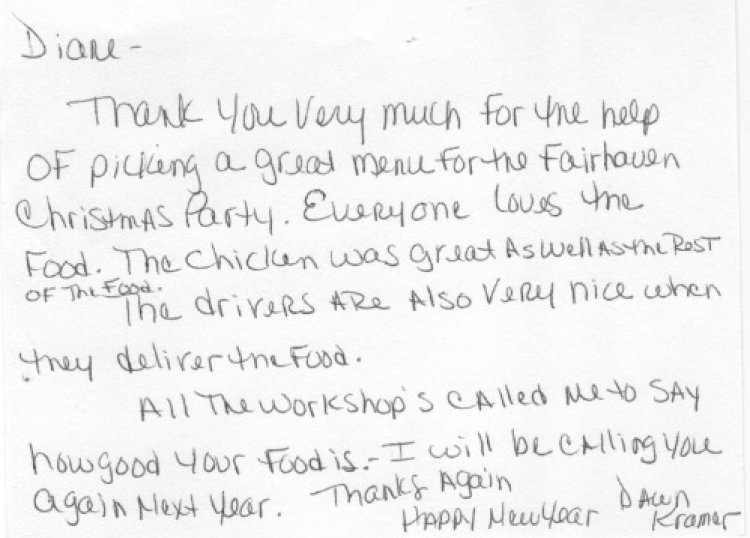 Diane -
Thank You Very much for the help
OF picking a great menu for the Fairhaven
Christmas Party. Everyone loves the
Food. The Chicken was great As well As the Rest
OF The Food.
The drivers ARe Also Very nice when
they deliver the Food.
All The Workshop's CAlled Me to SAY
how good Your Food is. - I will be CAlling you
Again Next Year. Thanks Again
HAPPY New Year DAwn
Kramer